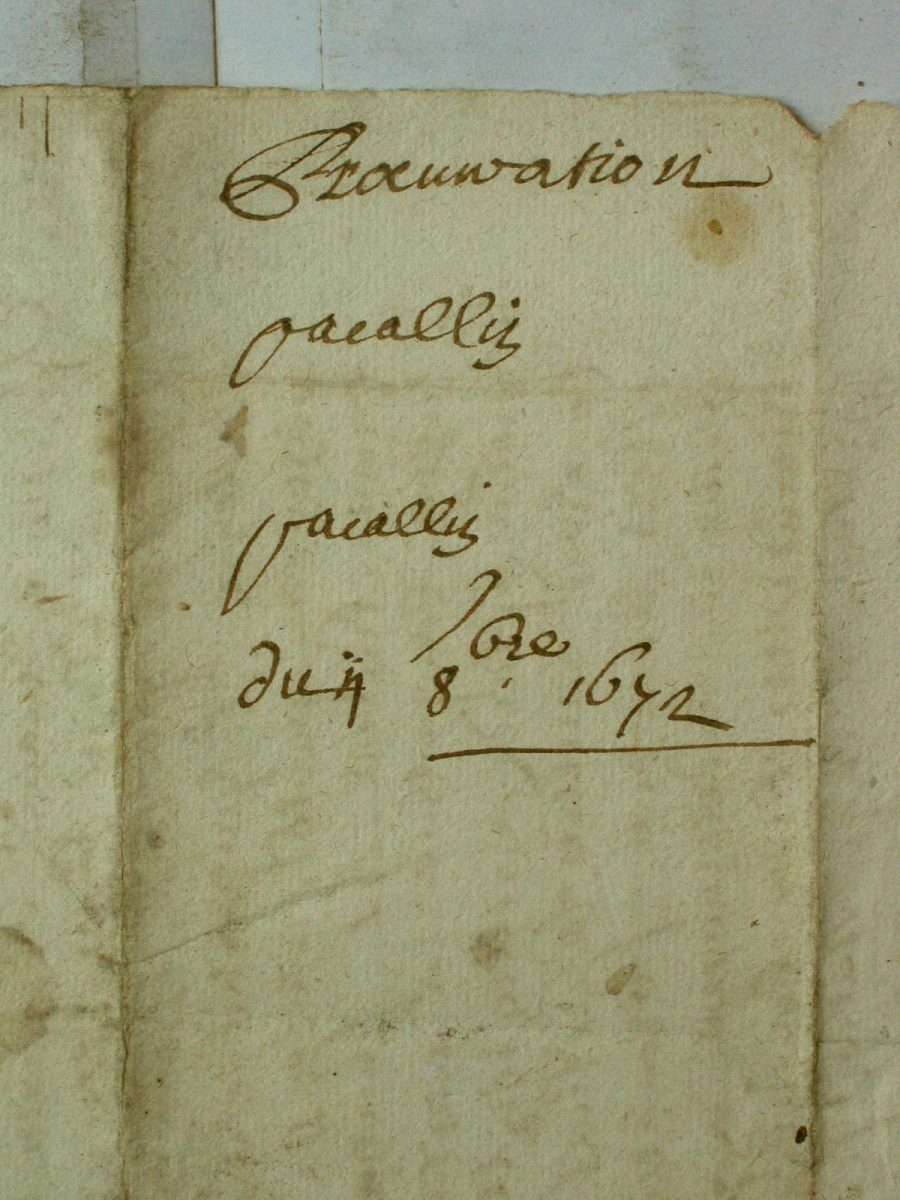 Procuration
pacallis
pacallis
du 4 8bre 1672